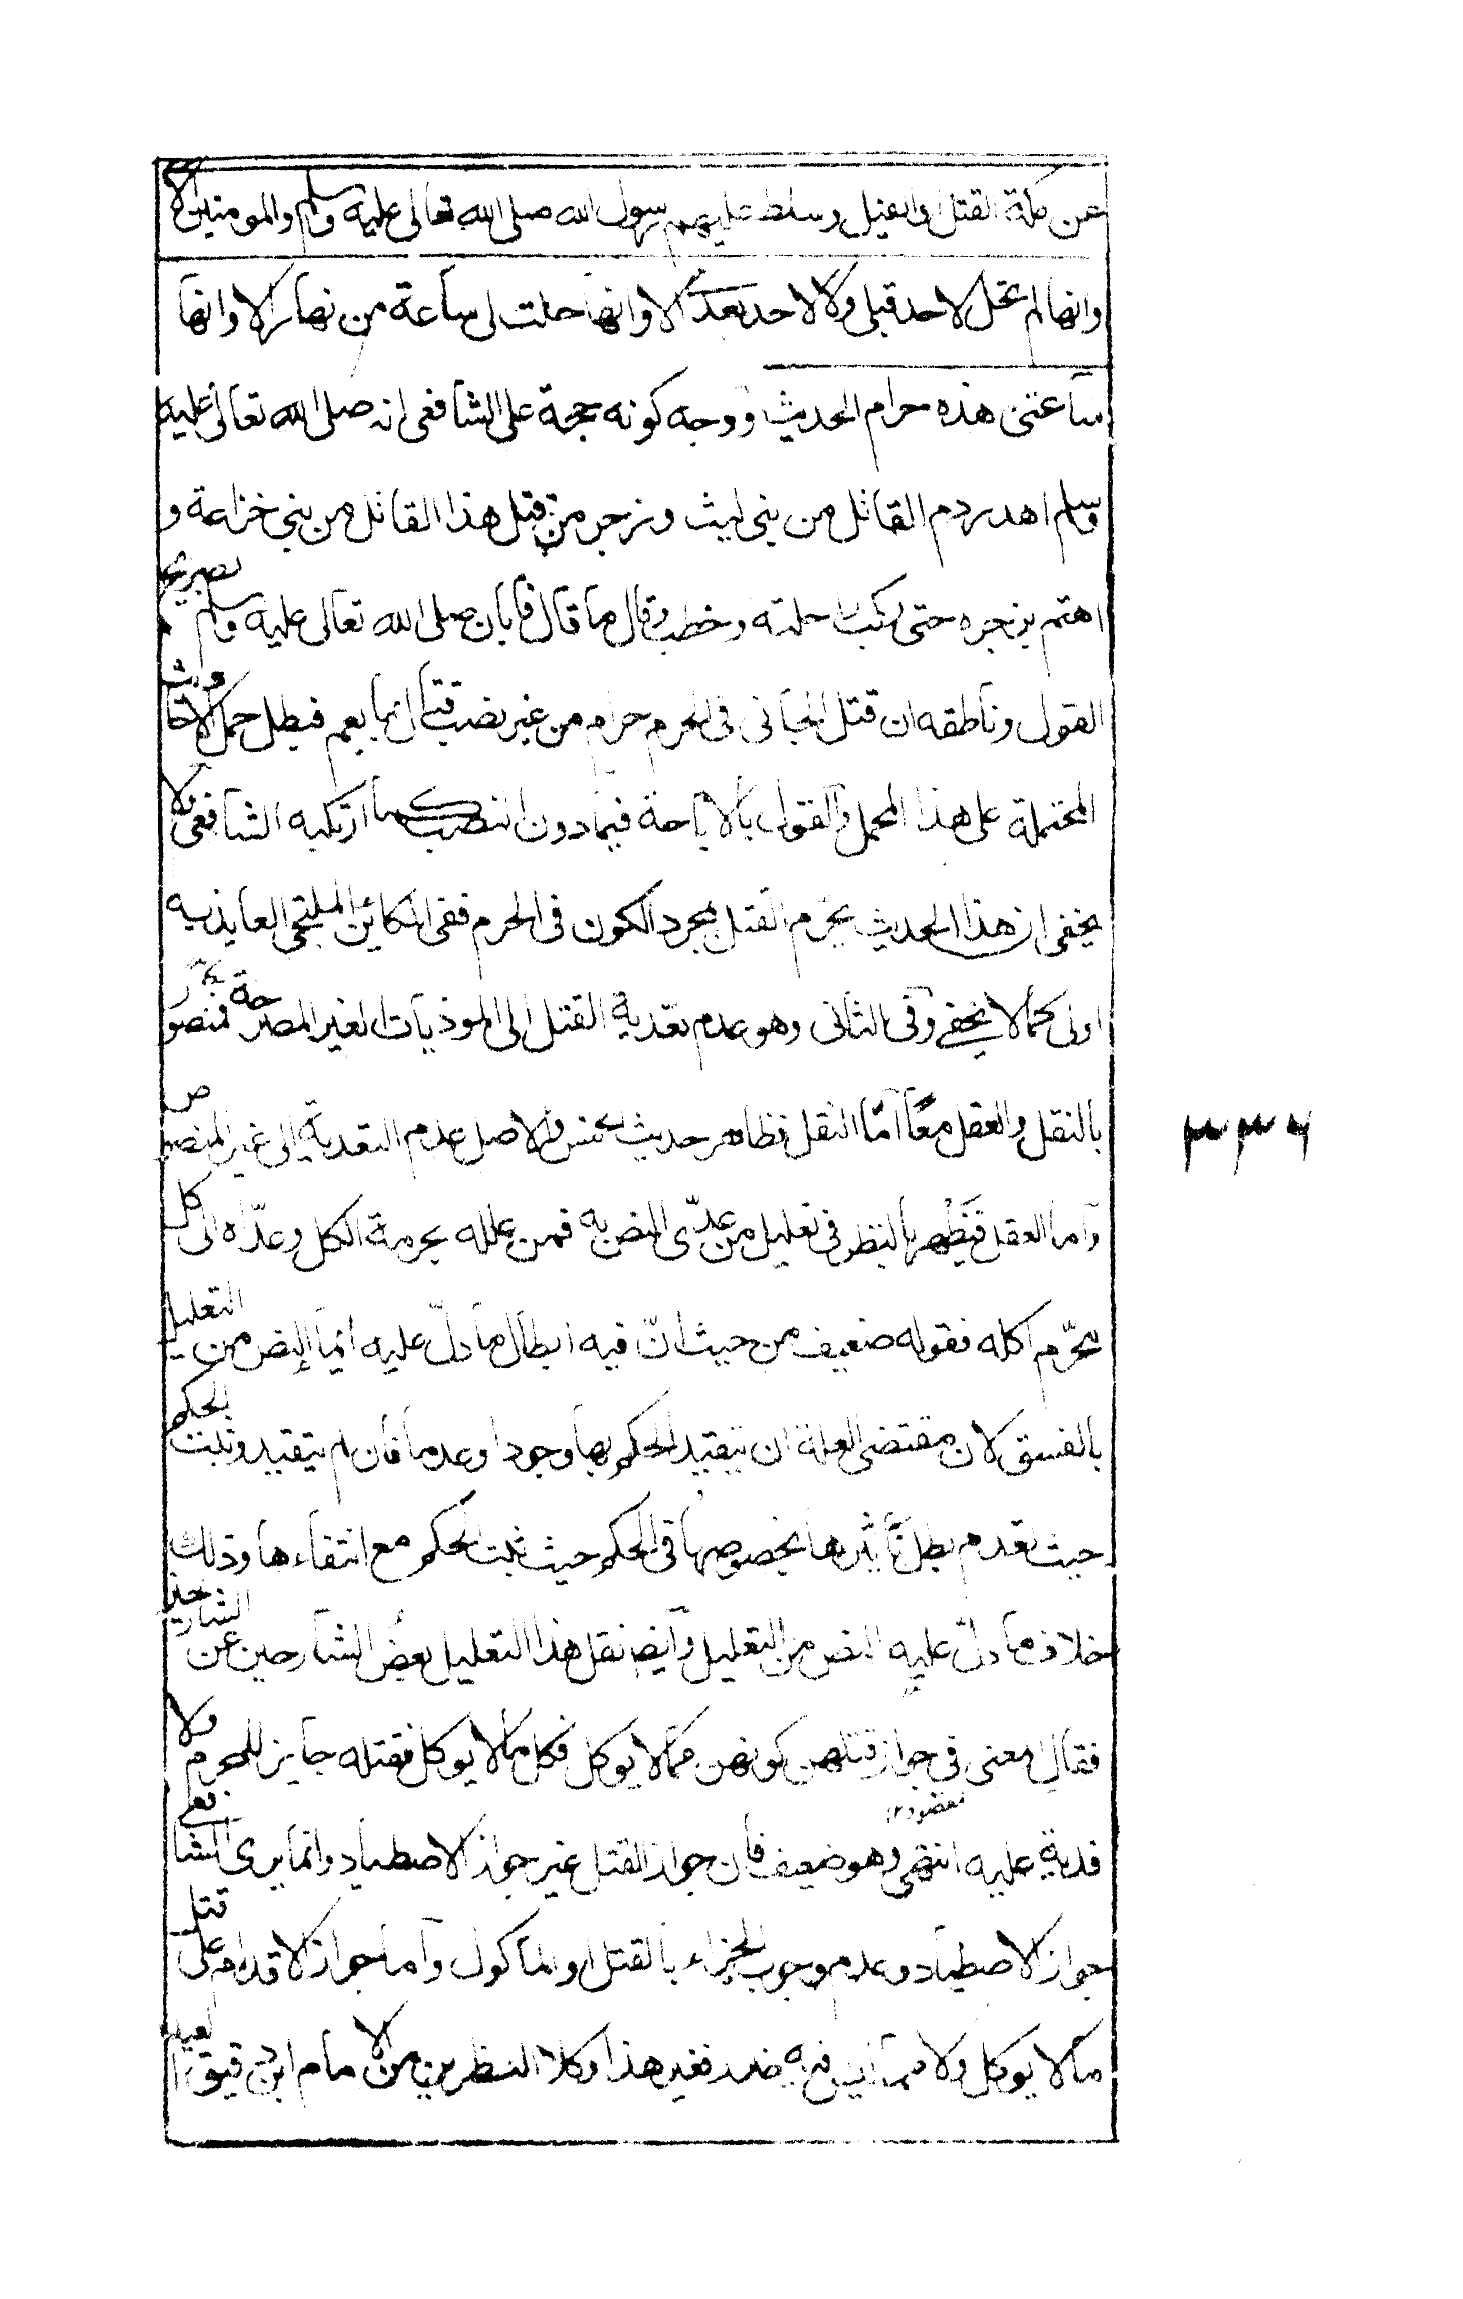 عن مكة القتل او الفيل وسلط عليهم رسول الله صلى الله تعالى عليه وسلم والمومنين الا
وانها لم تحل لاحد قبلى ولا لاحد بعدى الا وانها حلت لى ساعة من نهار الا وانها
ساعتى هذه حرام الحديث ووجه كونه حجة على الشافعى انه صلى الله تعالى عليه
وسلم اهدر دم القاتل من بنى ليث وزجر من قتل هذا القاتل من بنى خزاعة و
اهتم بزجره حتى ركب راحلته وخطب وقال ما قال فابان صلى الله تعالى عليه وسلم بصريح
القول وناطقه ان قتل الجانى فى الحرم حرام من غير نصب قتال انما يعم فبطل حمل الاحاديث
المحتملة على هذا المحمل والقول بالاباحة فيما دون النصب كما ارتكبه الشافعى ولا
يخفى ان هذا الحديث يحرم القتل بمجرد الكون فى الحرم ففى الكائن الملتجى العايذ به
اولى كما لا يخفى وفى الثانى وهو عدم تعدية القتل الى الموذيات الغير المصرحة فمنصور
بالنقل والعقل معا اما النقل فظاهر حديث الخمس والاصل عدم التعدية الى غير المنصوص
واما العقل فيظهر بالنظر فى تعليل من عدى النص به فمن علله بحرمة الاكل وعداه الى كل
محرم اكله فقوله ضعيف من حيث ان فيه ابطال ما دل عليه ايما النص من التعليل
بالفسق لان مقتضى العلة ان يتقيد الحكم بها وجودا وعدما فان لم يتقيد وثبت الحكم
حيث تعدم بطل تاثيرها بخصوصها فى الحكم حيث ثبت الحكم مع انتفاءها وذلك
خلاف ما دل عليه النص من التعليل وايضا نقل هذا التعليل بعض الشارحين عن الشارحين
فقال معنى فى جواز قتلهن كونهن مما لا يوكل فكل ما لا يوكل فقتله جايز للمحرم ولا
فدية عليه انتهى وهو ضعيف فان جواز القتل غير جواز الاصطياد وانما يرى الشافعى
جواز الاصطياد وعدم وجوب الجزاء بالقتل او الماكول واما جواز الاقدام على قتل
ما لا يوكل ولا مما ليس فيه ضرر فغير هذا وكلا النظرين من الامام ابن دقيق العيد
٣٣٦